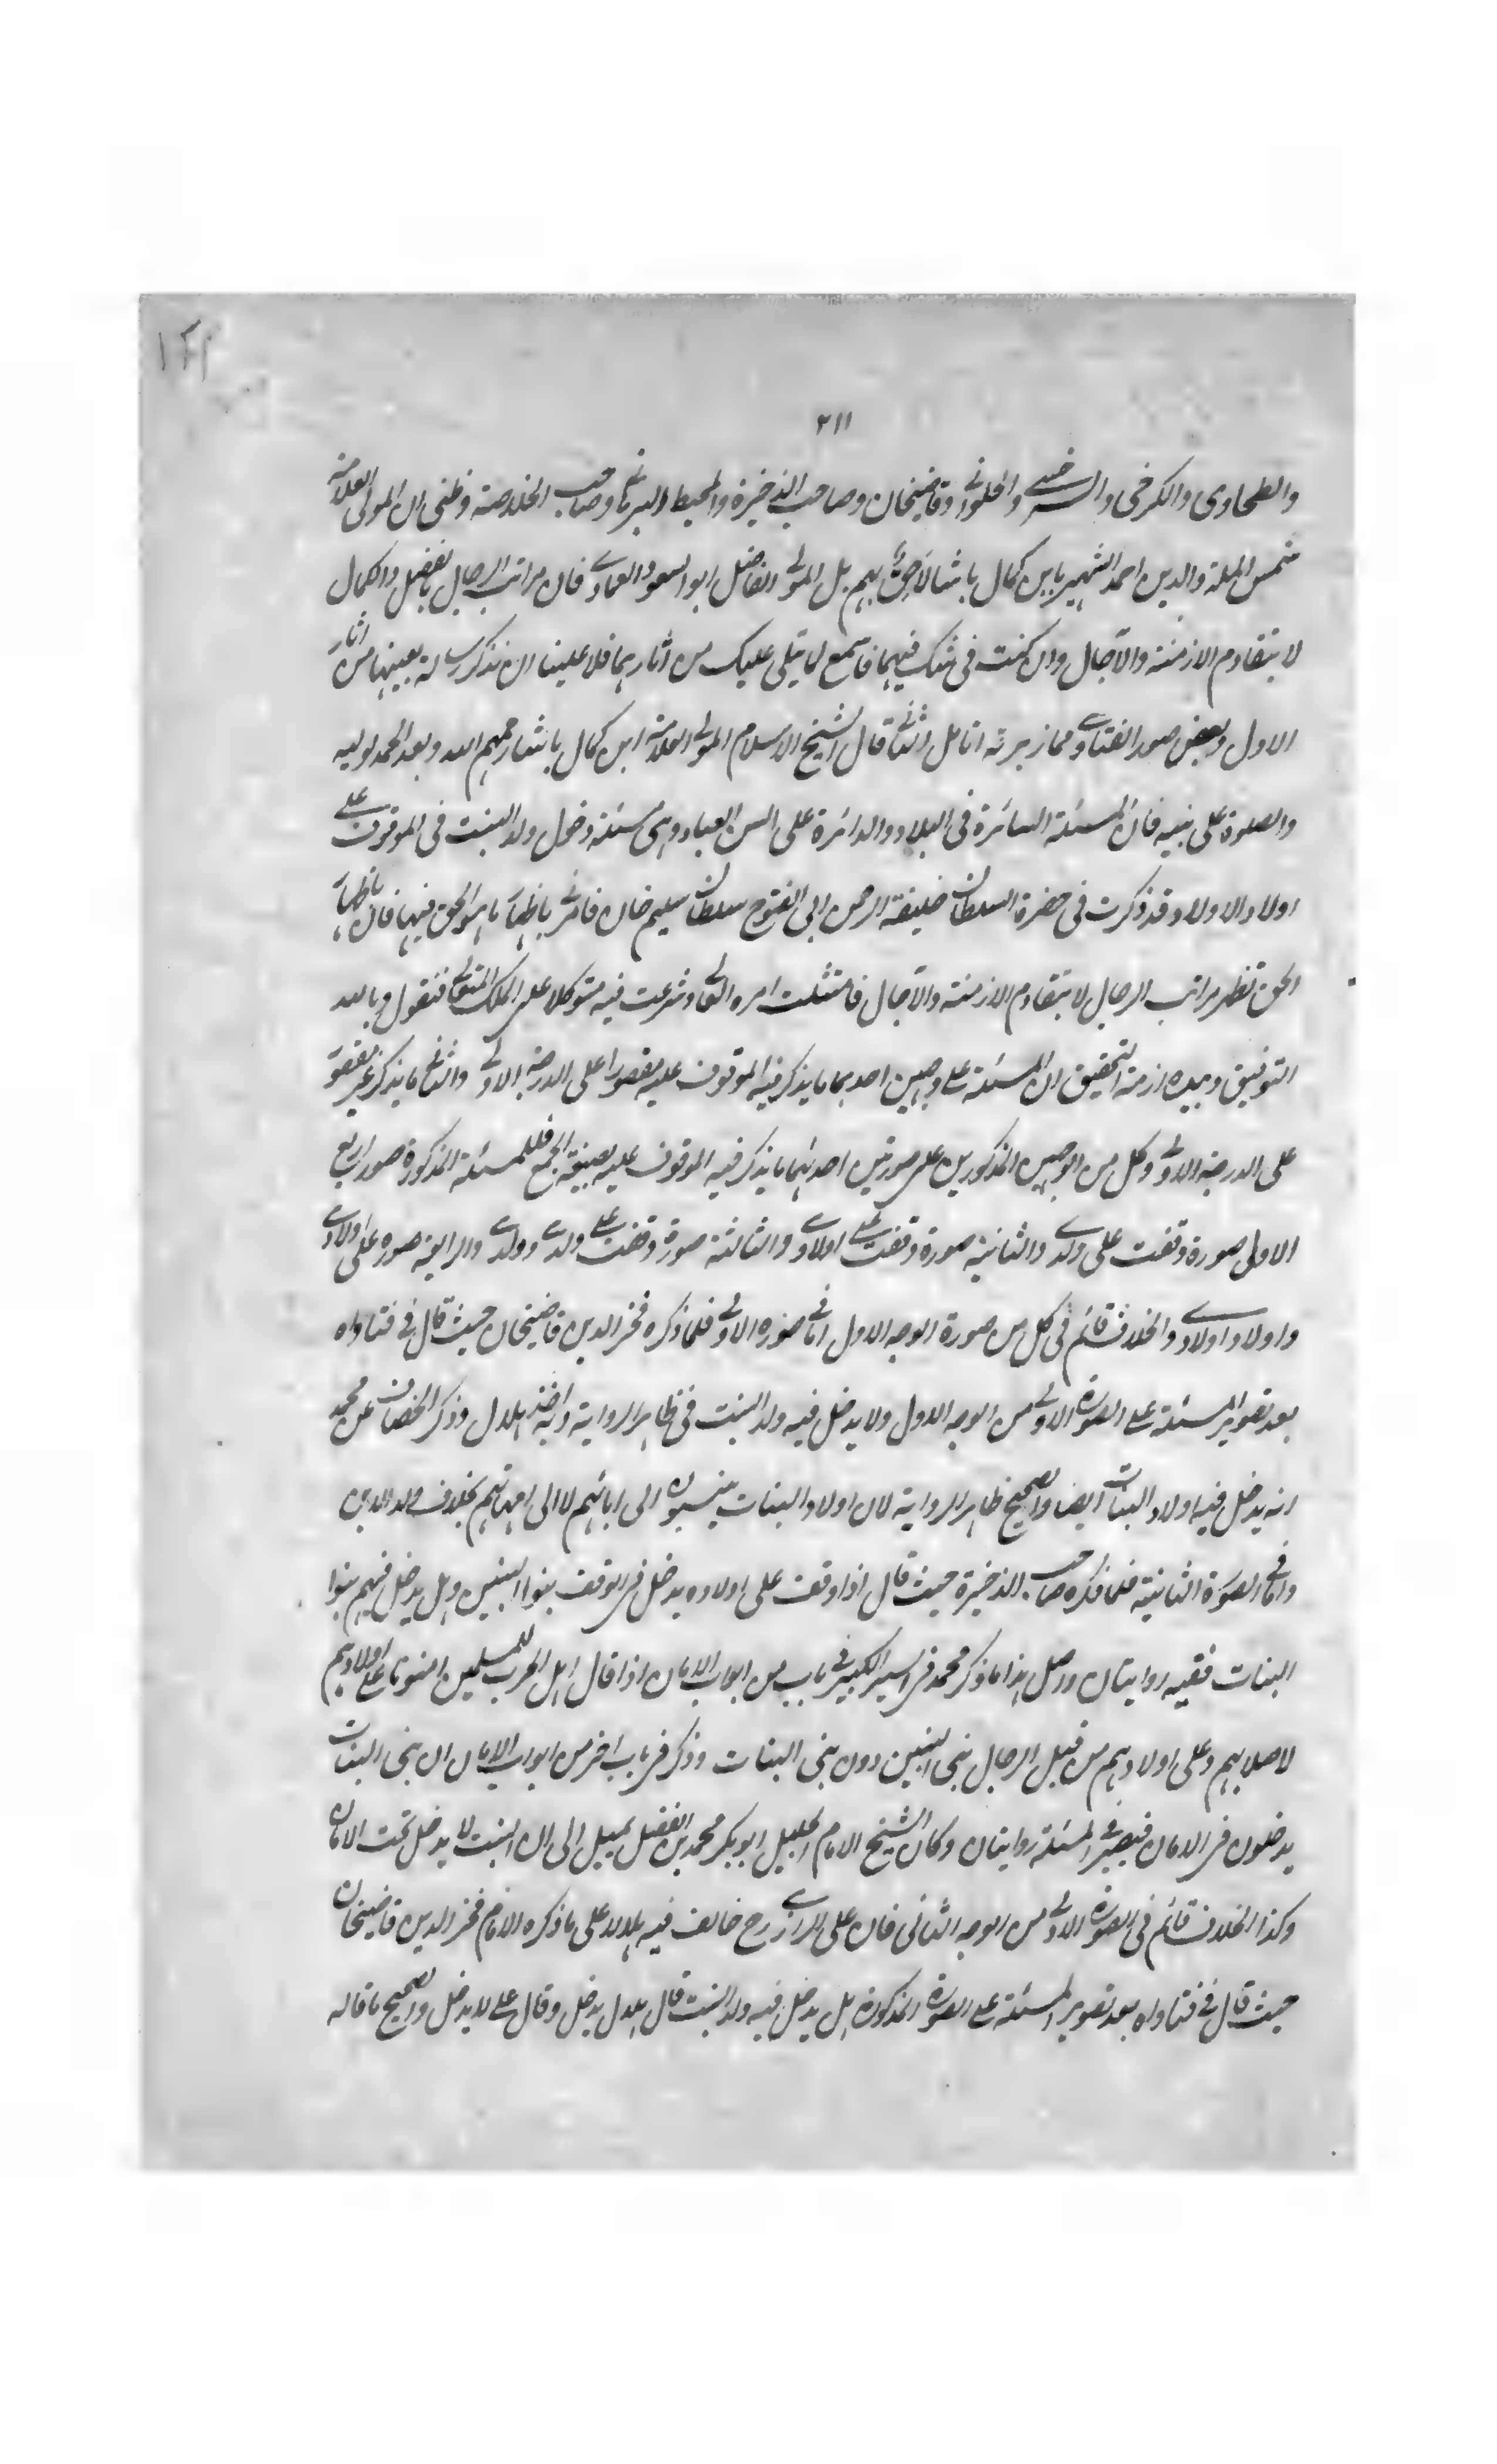 ١٤٢
٢١١
والطحاوى والكرخى والسرخسى والحلوانى وقاضيخان وصاحب الذخيرة والمحيط البرهانى وصاحب الخلاصة وظنى ان المولى العلامة
شمس الملة والدين احمد الشهير بابن كمال باشا لاحق بهم بل المولى الفاضل ابو السعود العمادى فان مراتب الرجال بالفضل والكمال
لا بتقادم الازمنة والآجال وان كنت فى شك فيهما فاسمع لما يتلى عليك من آثارهما فلا علينا ان نذكر رسالة بعينها من اثار
الاول وبعض صور الفتاوى مما زبرته انامل الثانى قال الشيخ الاسلام المولى العلامة ابن كمال باشا رحمهم الله وبعد الحمد لوليه
والصلوة على نبيه فان المسئلة السائرة فى البلاد والدائرة على السن العباد وهى مسئلة دخول ولد البنت فى الموقوف على
اولاد الاولاد قد ذكرت فى حضرة السلطان خليفة الرحمن ابى الفتوح سلطان سليم خان فامرنى باظهار ما هو الحق فيها فان باظهار
الحق تظهر مراتب الرجال لا بتقادم الازمنة والآجال فامتثلت امره العالى وشرعت فيه متوكلا على الملك المتعالى فنقول وبالله
التوفيق وبيده ازمة التحقيق ان المسئلة على وجهين احدهما ما يذكر فيه الموقوف عليه مقصورا على الدرجة الاولى والثانى ما يذكر غير مقصور
على الدرجة الاولى وكل من الوجهين المذكورين على صورتين احدئهما ما يذكر فيه الموقوف عليه بصيغة الجمع فللمسئلة المذكورة صور اربع
الاولى صورة وقفت على ولدى والثانية صورة وقفت على اولادى والثالثة صورة وقفت على ولدى وولدى والرابعة صوره على اولادى
واولاد اولادى والخلاف قائم فى كل من صورة الوجه الاول اما فى صوره الاولى فلما ذكره فخر الدين قاضيخان حيث قال فى فتاواه
بعد تصوير المسئلة على الصورة الاولى من الوجه الاول ولا يدخل فيه ولد البنت فى ظاهر الرواية وبه اخذ هلال وذكر الخصاف عن محمد
انه يدخل فيه اولاد البنات ايضا والصحيح ظاهر الرواية لان اولاد البنات ينسبون الى ابائهم لا الى امهاتهم بخلاف ولد الابن
واما فى الصورة الثانية فلما ذكره صاحب الذخيرة حيث قال اذا وقف على اولاده يدخل فى الوقف بنوا البنين وهل يدخل فيهم بنوا
البنات ففيه روايتان واصل هذا ما ذكر محمد فى السير الكبير فى باب من ابواب الامان اذا قال اهل الحرب للمسلمين امنونا على اولادهم
لاصلابهم وعلى اولادهم من قبل الرجال بنى البنين دون بنى البنات وذكر فى باب اخر من ابواب الامان ان بنى البنات
يدخلون فى الامان فيصير فى المسئلة روايتان وكان الشيخ الامام الجليل ابو بكر محمد بن الفضل يميل الى ان البنت لا يدخل تحت الامان
وكذا الخلاف قائم فى الصورة الاولى من الوجه الثانى فان على الرازى رح خالف فيه هلالا على ما ذكره الامام فخر الدين قاضيخان
حيث قال فى فتاواه بعد تصوير المسئلة على الصورة المذكورة هل يدخل فيه ولد البنت قال هلال يدخل وقال على لا يدخل والصحيح ما قاله